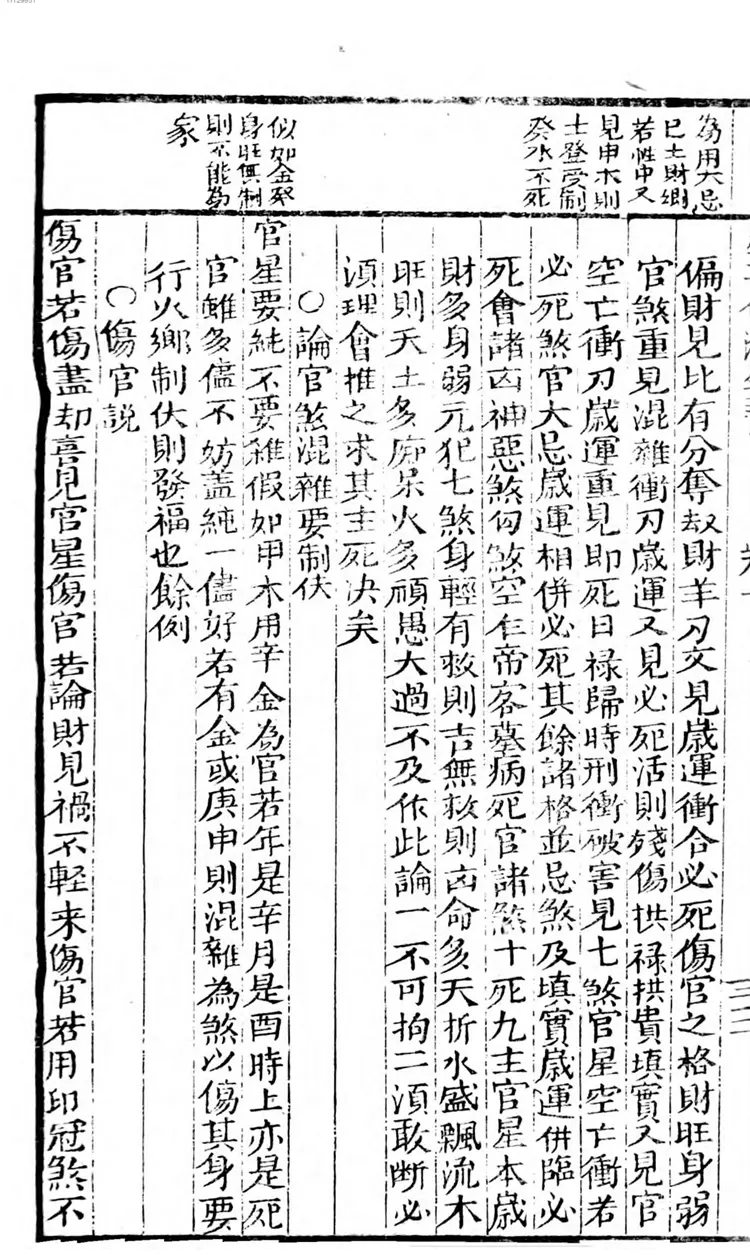 為用大忌
巳土財鄉
若性中又
見申木則
士登受制
癸水不死
似如金癸
身旺無制
則不能為
家
偏財見比有分奪劫財羊刃交見歲運衝合必死傷官之格財旺身弱
官煞重見混雜衝刃歲運又見必死活則殘傷拱禄拱貴填實又見官
空亡衝刃歲運重見即死日禄歸時刑衝破害見七煞官星空亡衝若
必死煞官大忌歲運相併必死其餘諸格並忌煞及填實歲運併臨必
死會諸凶神惡煞勾煞空亡帝客墓病死官諸煞十死九主官星本歲
財多身弱元犯七煞身輕有救則吉無救則凶命多夭折水盛飄流木
旺則夭土多痴呆火多頑愚大過不及作此論一不可拘二須敢断必
須理會推之求其主死决矣
○論官煞混雜要制伏
官星要純不要雜假如甲木用辛金為官若年是辛月是酉時上亦是死
官雖多儘不妨蓋純一儘好若有金或庚申則混雜為煞以傷其身要
行火鄉制伏則發福也餘例
○傷官説
傷官若傷盡却喜見官星傷官若論財見禍不輕来傷官若用印冠煞不